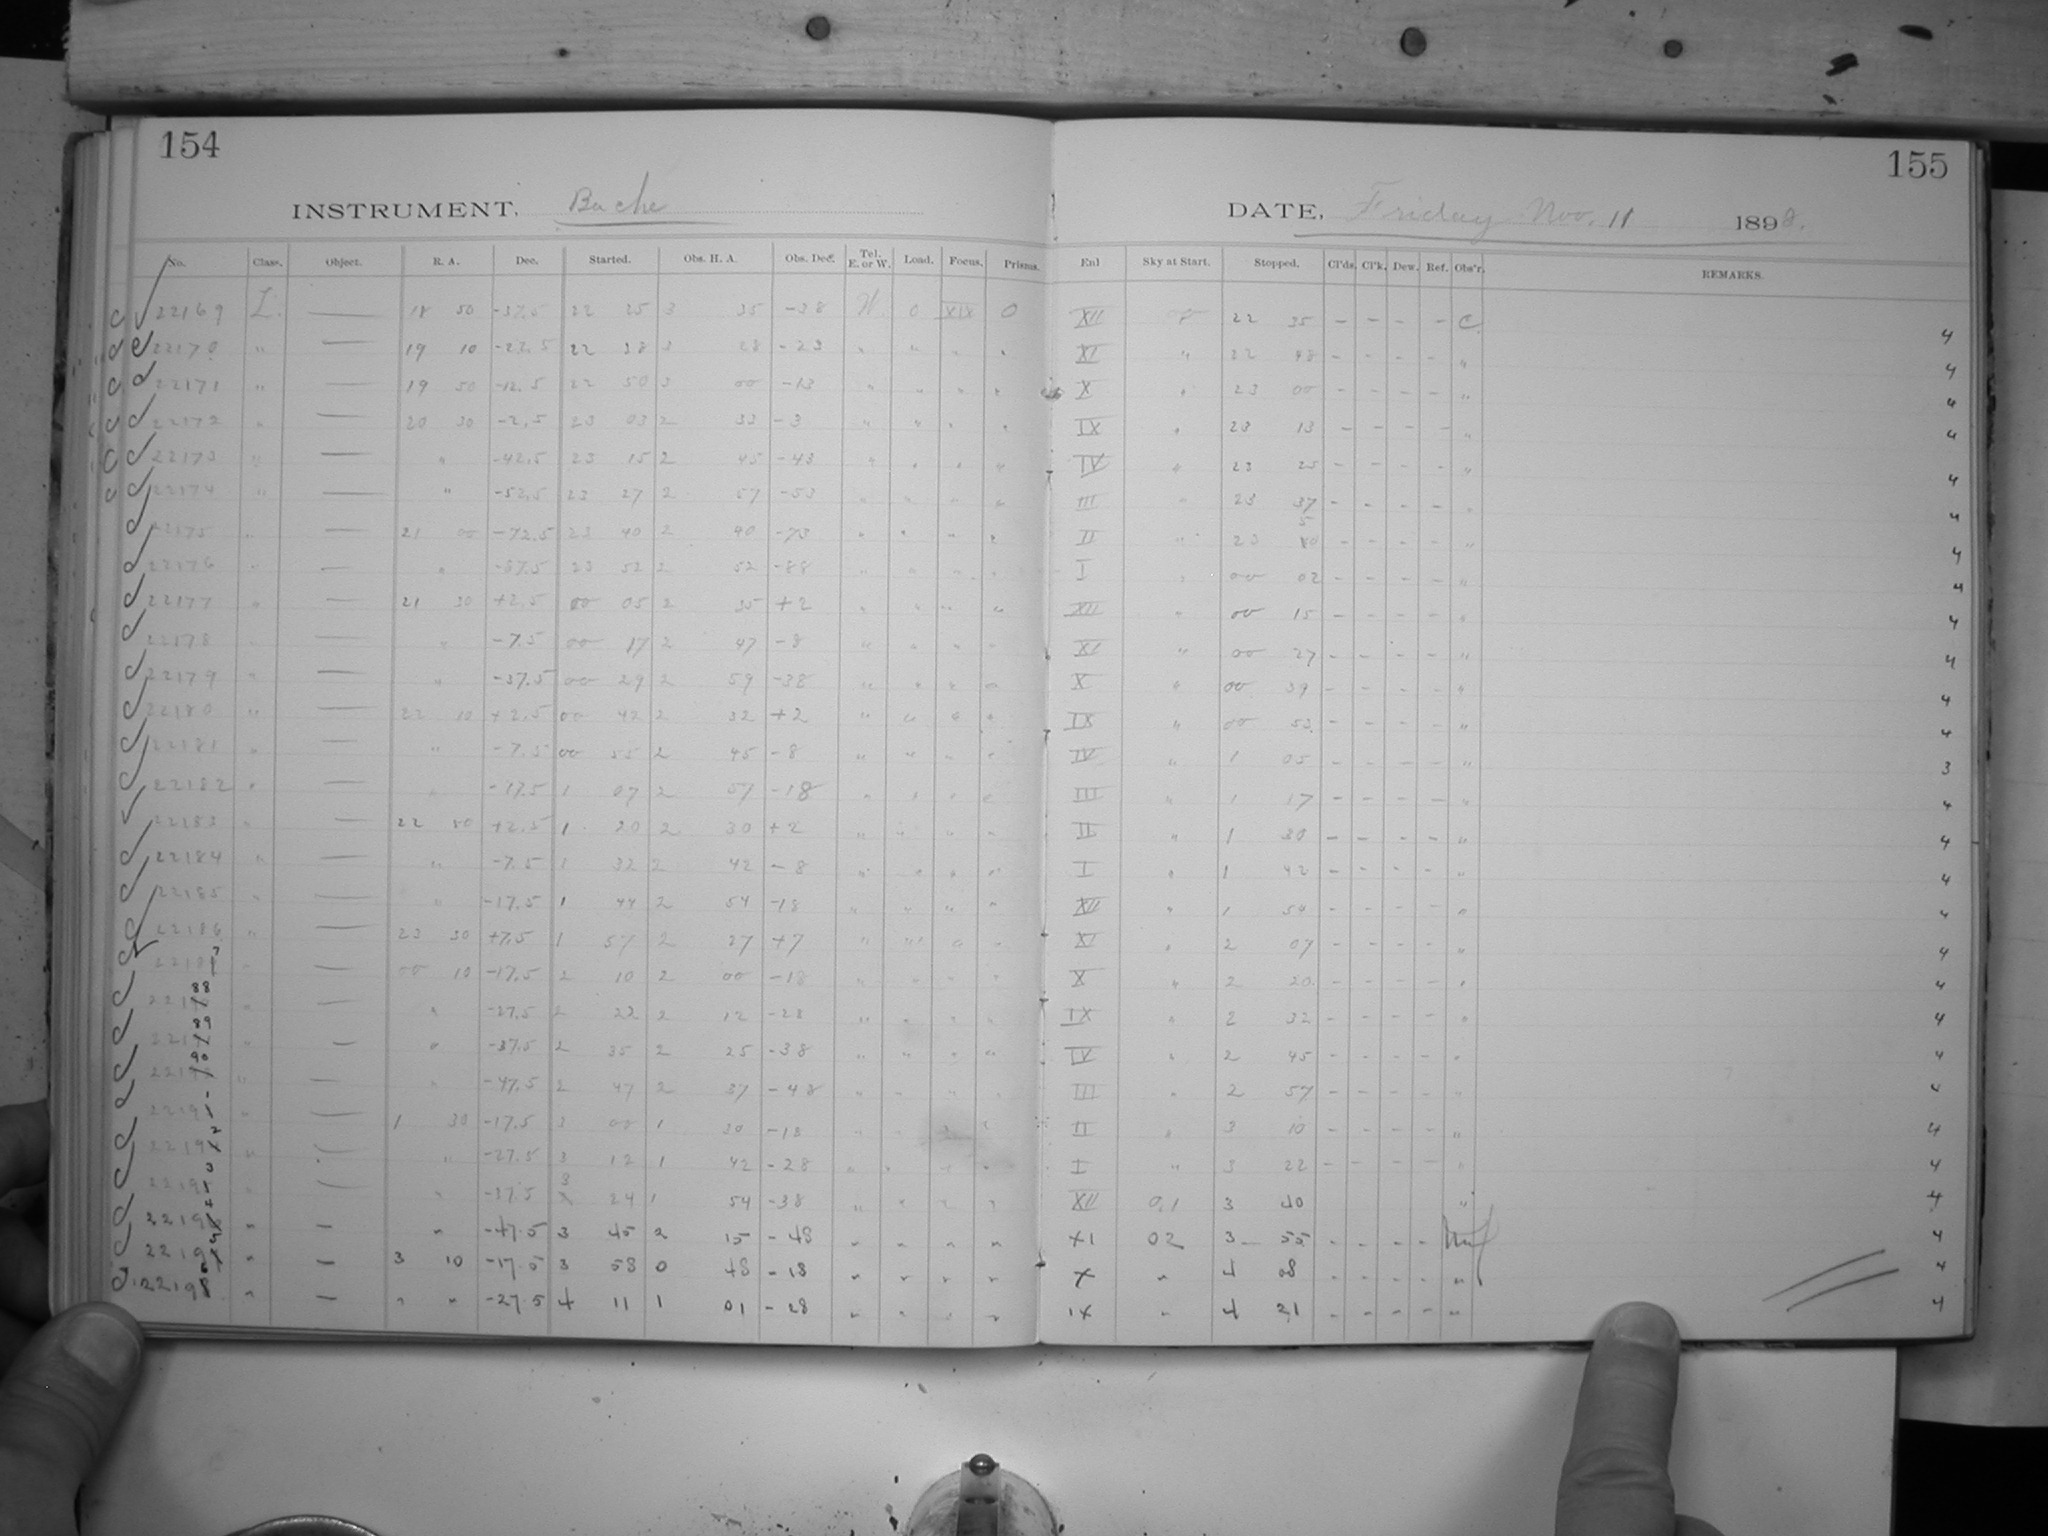 154
155
INSTRUMENT, Bache
DATE, Friday Nov. 11 1898.
No. Class. Object. R. A. Dec. Started. Obs. H. A. Obs. Dec. Tel. E. or W. Load. Focus. Prisms. Enl Sky at Start. Stopped. Cl'ds. Cl'k. Dew. Ref. Obs'r. REMARKS.
22169 L. — 18 50 -37.5 22 25 3 35 -38 W. 0 XIX 0 XII 22 35 - - - - C. 4
22170 " — 19 10 -22.5 22 38 3 28 -23 " " " " XI " 22 48 - - - - " 4
22171 " — 19 50 -12.5 22 50 3 00 -13 " " " " X " 23 00 - - - - " 4
22172 " — 20 30 -2.5 23 03 2 33 -3 " " " " IX " 23 13 - - - - " 4
22173 " — " -42.5 23 15 2 45 -43 " " " " IV " 23 25 - - - - " 4
22174 " — " -52.5 23 27 2 57 -53 " " " " III " 23 37 - - - - " 4
22175 " — 21 00 -72.5 23 40 2 40 -73 " " " " II " 23 50 - - - - " 4
22176 " — " -87.5 23 52 2 52 -88 " " " " I " 00 02 - - - - " 4
22177 " — 21 30 +2.5 00 05 2 35 +2 " " " " XII " 00 15 - - - - " 4
22178 " — " -7.5 00 17 2 47 -8 " " " " XI " 00 27 - - - - " 4
22179 " — " -37.5 00 29 2 59 -38 " " " " X " 00 39 - - - - " 4
22180 " — 22 10 +2.5 00 42 2 32 +2 " " " " IX " 00 53 - - - - " 4
22181 " — " -7.5 00 55 2 45 -8 " " " " IV " 1 05 - - - - " 3
22182 " — " -17.5 1 07 2 57 -18 " " " " III " 1 17 - - - - " 4
22183 " — 22 50 +2.5 1 20 2 30 +2 " " " " II " 1 30 - - - - " 4
22184 " — " -7.5 1 32 2 42 -8 " " " " I " 1 42 - - - - " 4
22185 " — " -17.5 1 44 2 54 -18 " " " " XII " 1 54 - - - - " 4
22186 " — 23 30 +7.5 1 57 2 27 +7 " " " " XI " 2 07 - - - - " 4
" — 00 10 -17.5 2 10 2 00 -18 " " " " X " 2 20 - - - - " 4
" — " -27.5 2 22 2 12 -28 " " " " IX " 2 32 - - - - " 4
" — " -37.5 2 35 2 25 -38 " " " " IV " 2 45 - - - - " 4
" — " -47.5 2 47 2 37 -48 " " " " III " 2 57 - - - - " 4
" — 1 30 -17.5 3 00 1 30 -18 " " " " II " 3 10 - - - - " 4
" — " -27.5 3 12 1 42 -28 " " " " I " 3 22 - - - - " 4
" — " -37.5 3 24 1 54 -38 " " " " XII 0.1 3 40 " 4
" — " -47.5 3 45 2 15 -48 " " " " XI 02 3 55 - - - - 4
" — 3 10 -17.5 3 58 0 48 -18 " " " " X " 4 08 - - - - " 4
" — " " -27.5 4 11 1 01 -28 " " " " IX " 4 21 - - - - " 4